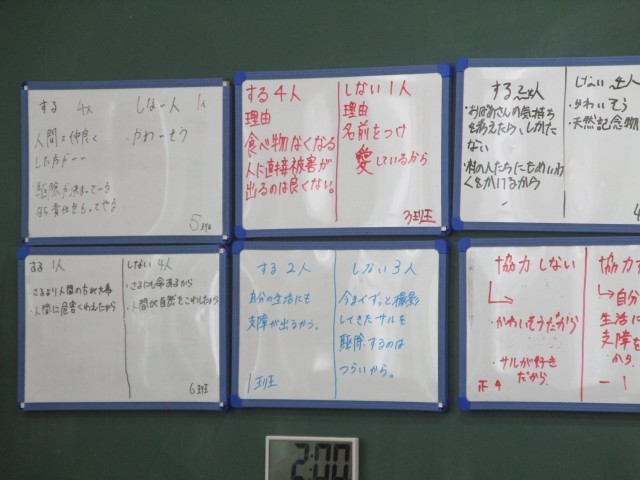 する 4人
人間と仲良く
した方が
駆除が決まっている
なら責任をもってやる
しない人 1人
かわいそう
5班
する4人
理由
食べ物なくなる
人に直接被害が
出るのは良くない。
しない1人
理由
名前をつけ
愛しているから
3班
する 2人
・おばあさんの気持ち
を考えたら、しかた
ない
・村の人たちにもめいわ
くをかけるから
しない 2人
・かわいそう
・天然記念物
する 1人
・さるより人間の方が大事
・人間に危害くわえたから
しない 4人
・さるにも命あるから
・人間が自然をこわしたから
6班
する2人
自分の生活にも
支障が出るから。
1班
しない3人
今までずっと撮影
してきたサルを
駆除するのは
つらいから。
協力しない
・かわいそうだから
・サルが好き
だから
正4
協力す
自分
生活に
支障を
から
-1
2:00